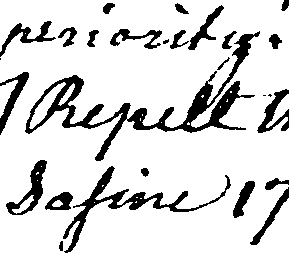 periority.
Repell
Safine 17